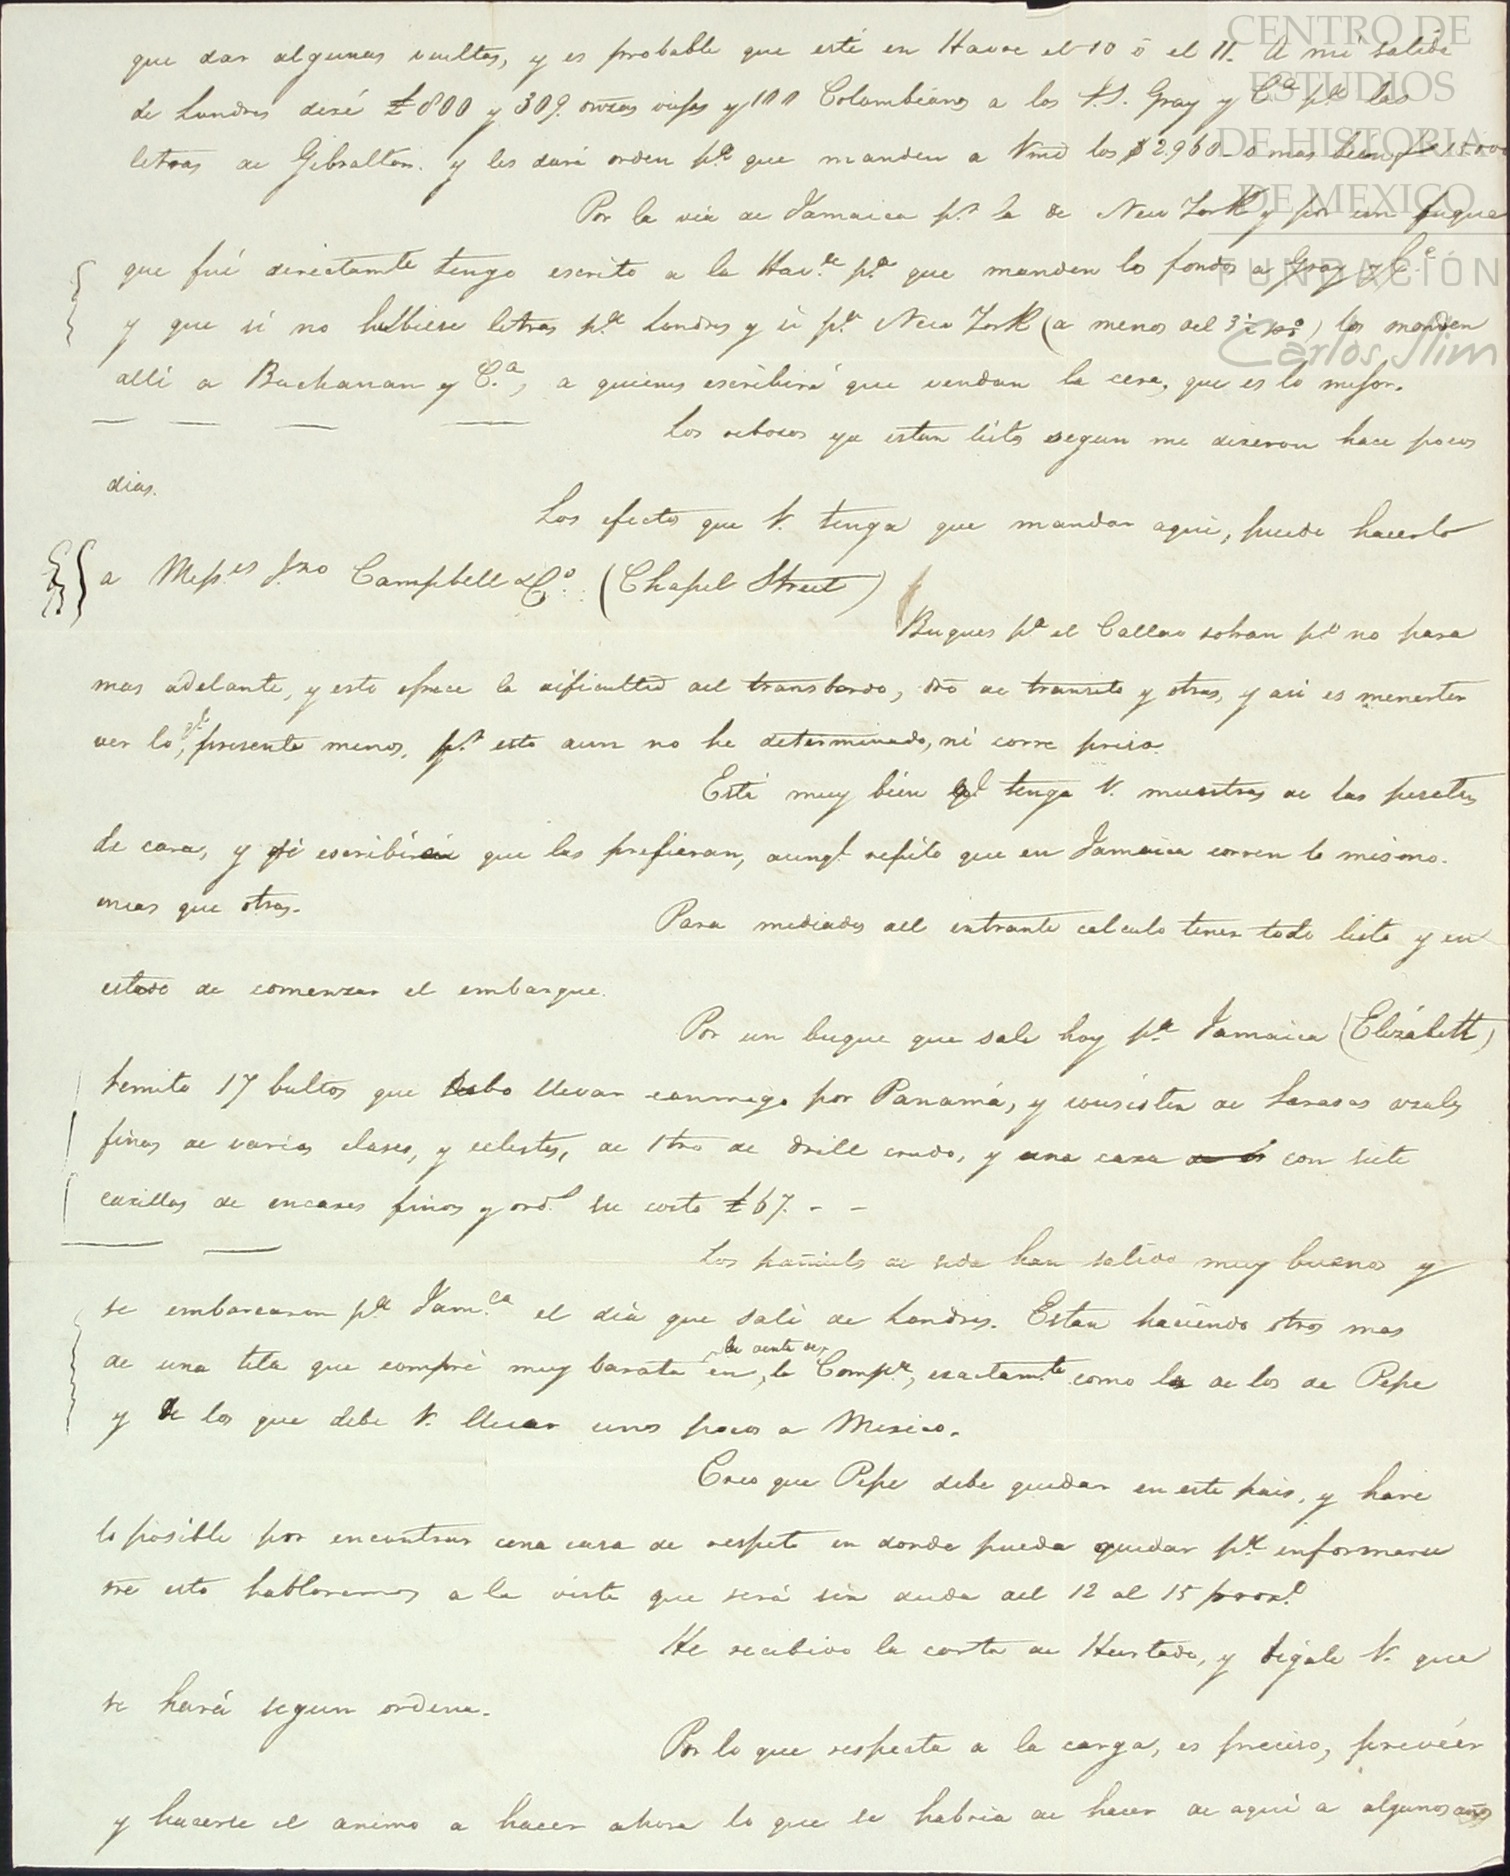 CENTRO DE
ESTUDIOS
DE HISTORIA
DE MEXICO
FUNDACIÓN
Carlos Slim
que dar algunas vueltas, y es probable que esté en Havre el 10 ó el 11. A mi salida
de Londres dexé £800 y 309. onzas viejas y 100 Colombianas a los S.S. Gray y Cª pª las
letras de Gibraltar. y les daré orden pª que manden a Vmd los $ 2.960 o mas bien
Por la via de Jamaica pr la de New York y por un buque
que fué directamte tengo escrito a la Havª pª que manden lo fondos a Gray y Cª
y que si no hubiese letras pª Londres y si pª New York (a menos del 3½ p%) los manden
alli a Buchanan y C.ª, a quienes escribiré que vendan la cera, que es lo mejor.
Los rebosos ya estan listos segun me dixeron hace pocos
dias.
Los efectos que V. tenga que mandar aqui, puede hacerlo
a Messes Jno Campbell & Co. (Chapel Street)
Buques pª el Callao sobran po no para
mas adelante, y esto ofrece la dificultad del transbordo, dro de transito y otros, y asi es menester
ver lo qe presenta menos. pr esto aun no he determinado, ni corre prisa.
Está muy bien qe tenga V. muestras de las pesetas
de cara, y escribiré que las prefieran, aunqe repito que en Jamaica corren lo mismo.
unas que otras.
Para mediados del entrante calculo tener todo listo y en
estado de comenzar el embarque.
Por un buque que sale hoy pª Jamaica (Elizabeth)
remito 17 bultos que debo llevar conmigo por Panamá, y consisten de Sarasas azules
finas de varias clases, y celestes, de 1 tro de drill crudo, y una caxa con siete
caxillas de encaxes finos y ord.s su costo £67. - -
Los pañuelos de seda han salido muy buenos y
se embarcaron pª Jam.ca el dia que sali de Londres. Estan haciendo otros mas
de una tela que compré muy barata en la venta de la Compª, exactamte como la de los de Pepe
y de los que debe V. llevar unos pocos a Mexico.
Creo que Pepe debe quedar en este pais, y haré
lo posible por encontrar una casa de respeto en donde pueda quedar pª informarse
sre esto hablaremos a la vista que será sin duda del 12 al 15 proxo.
He recibido la carta de Hurtado, y digale V. que
se hará segun ordena.
Por lo que respecta a la carga, es preciso, preveér
y hacerse el animo a hacer ahora lo que se habria de hacer de aqui a algunos años